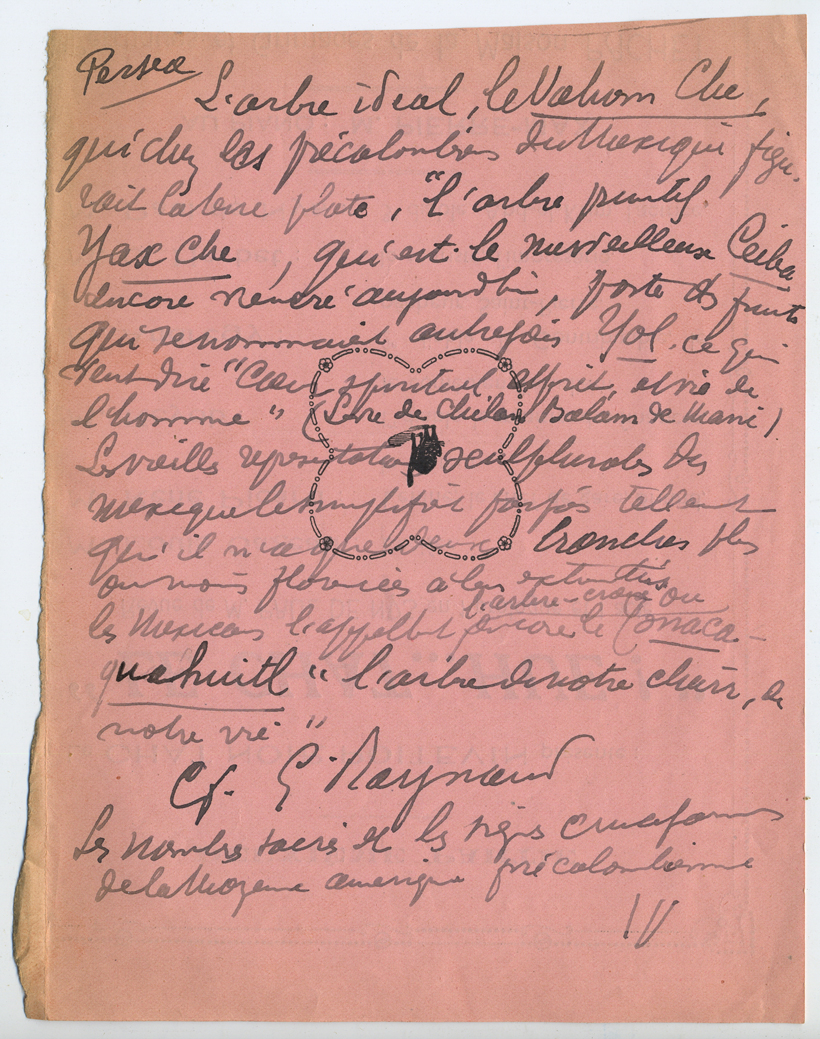 Persea
L'arbre idéal, le Vahom Che,
qui chez les précolombiens du Mexique figu-
rait la terre plate, "l'arbre primitif.
Yax Che, qui est le merveilleux Ceiba
encore vénéré aujourd'hui, porte des fruits
qui se nommaient autrefois Yol, ce qui
veut dire "Cœur spirituel, esprit, et vie de
l'homme" (Livre de Chilan Balam de Mani)
Les vieilles representations sculpturales du
mexique le simplifiait parfois tellement
qu'il n'a que deux branches plus
ou moins fleuries à leur extremités
l'arbre-croix ou
les Mexicains l'appellent encore le Tonaca-
quahuitl "l'arbre de notre chair, de
notre vie"
Cf. G. Raynaud
Les nombres sacrés et les signes cruciformes
de la Moyenne amerique précolombienne
IV